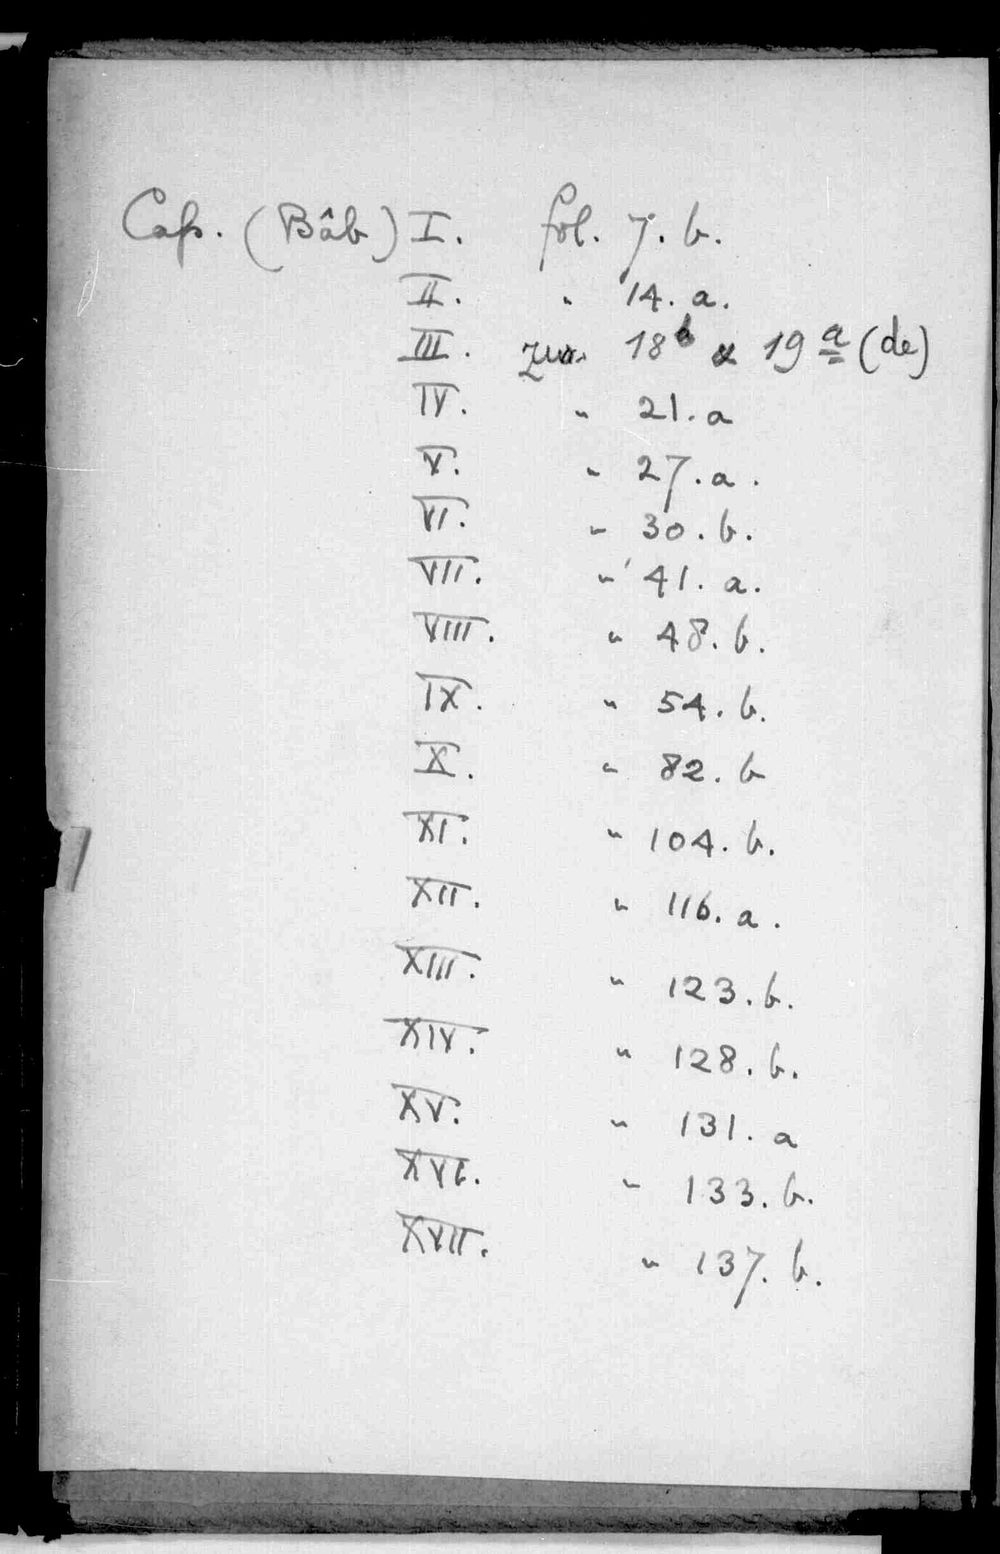 Cap. (Bâb) I. fol. 7. b.
II. " 14. a.
III. 18 b & 19 a (de)
IV. " 21. a
V. " 27. a.
VI. " 30. b.
VII. " 41. a.
VIII. " 48. b.
IX. " 54. b.
X. " 82. b
XI. " 104. b.
XII. " 116. a.
XIII. " 123. b.
XIV. " 128. b.
XV. " 131. a
XVI. " 133. b.
XVII. " 137. b.